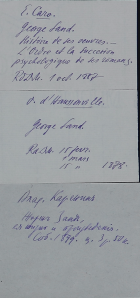 E. Caro.
George Sand.
Histoire de ses oeuvres. –
L'Ordre et la succession
psychologique de ses romans.
R.d.d.M. 1 oct. 1887
O. d'Haussonville.
George Sand.
R.d.d.M. 15 févr.
1 mars
15 " 1878.
Влад. Каренинъ
Жоржъ Зандъ,
ея жизнь и произведенія.
Спб. 1899. ц. 3 р. 50 к.